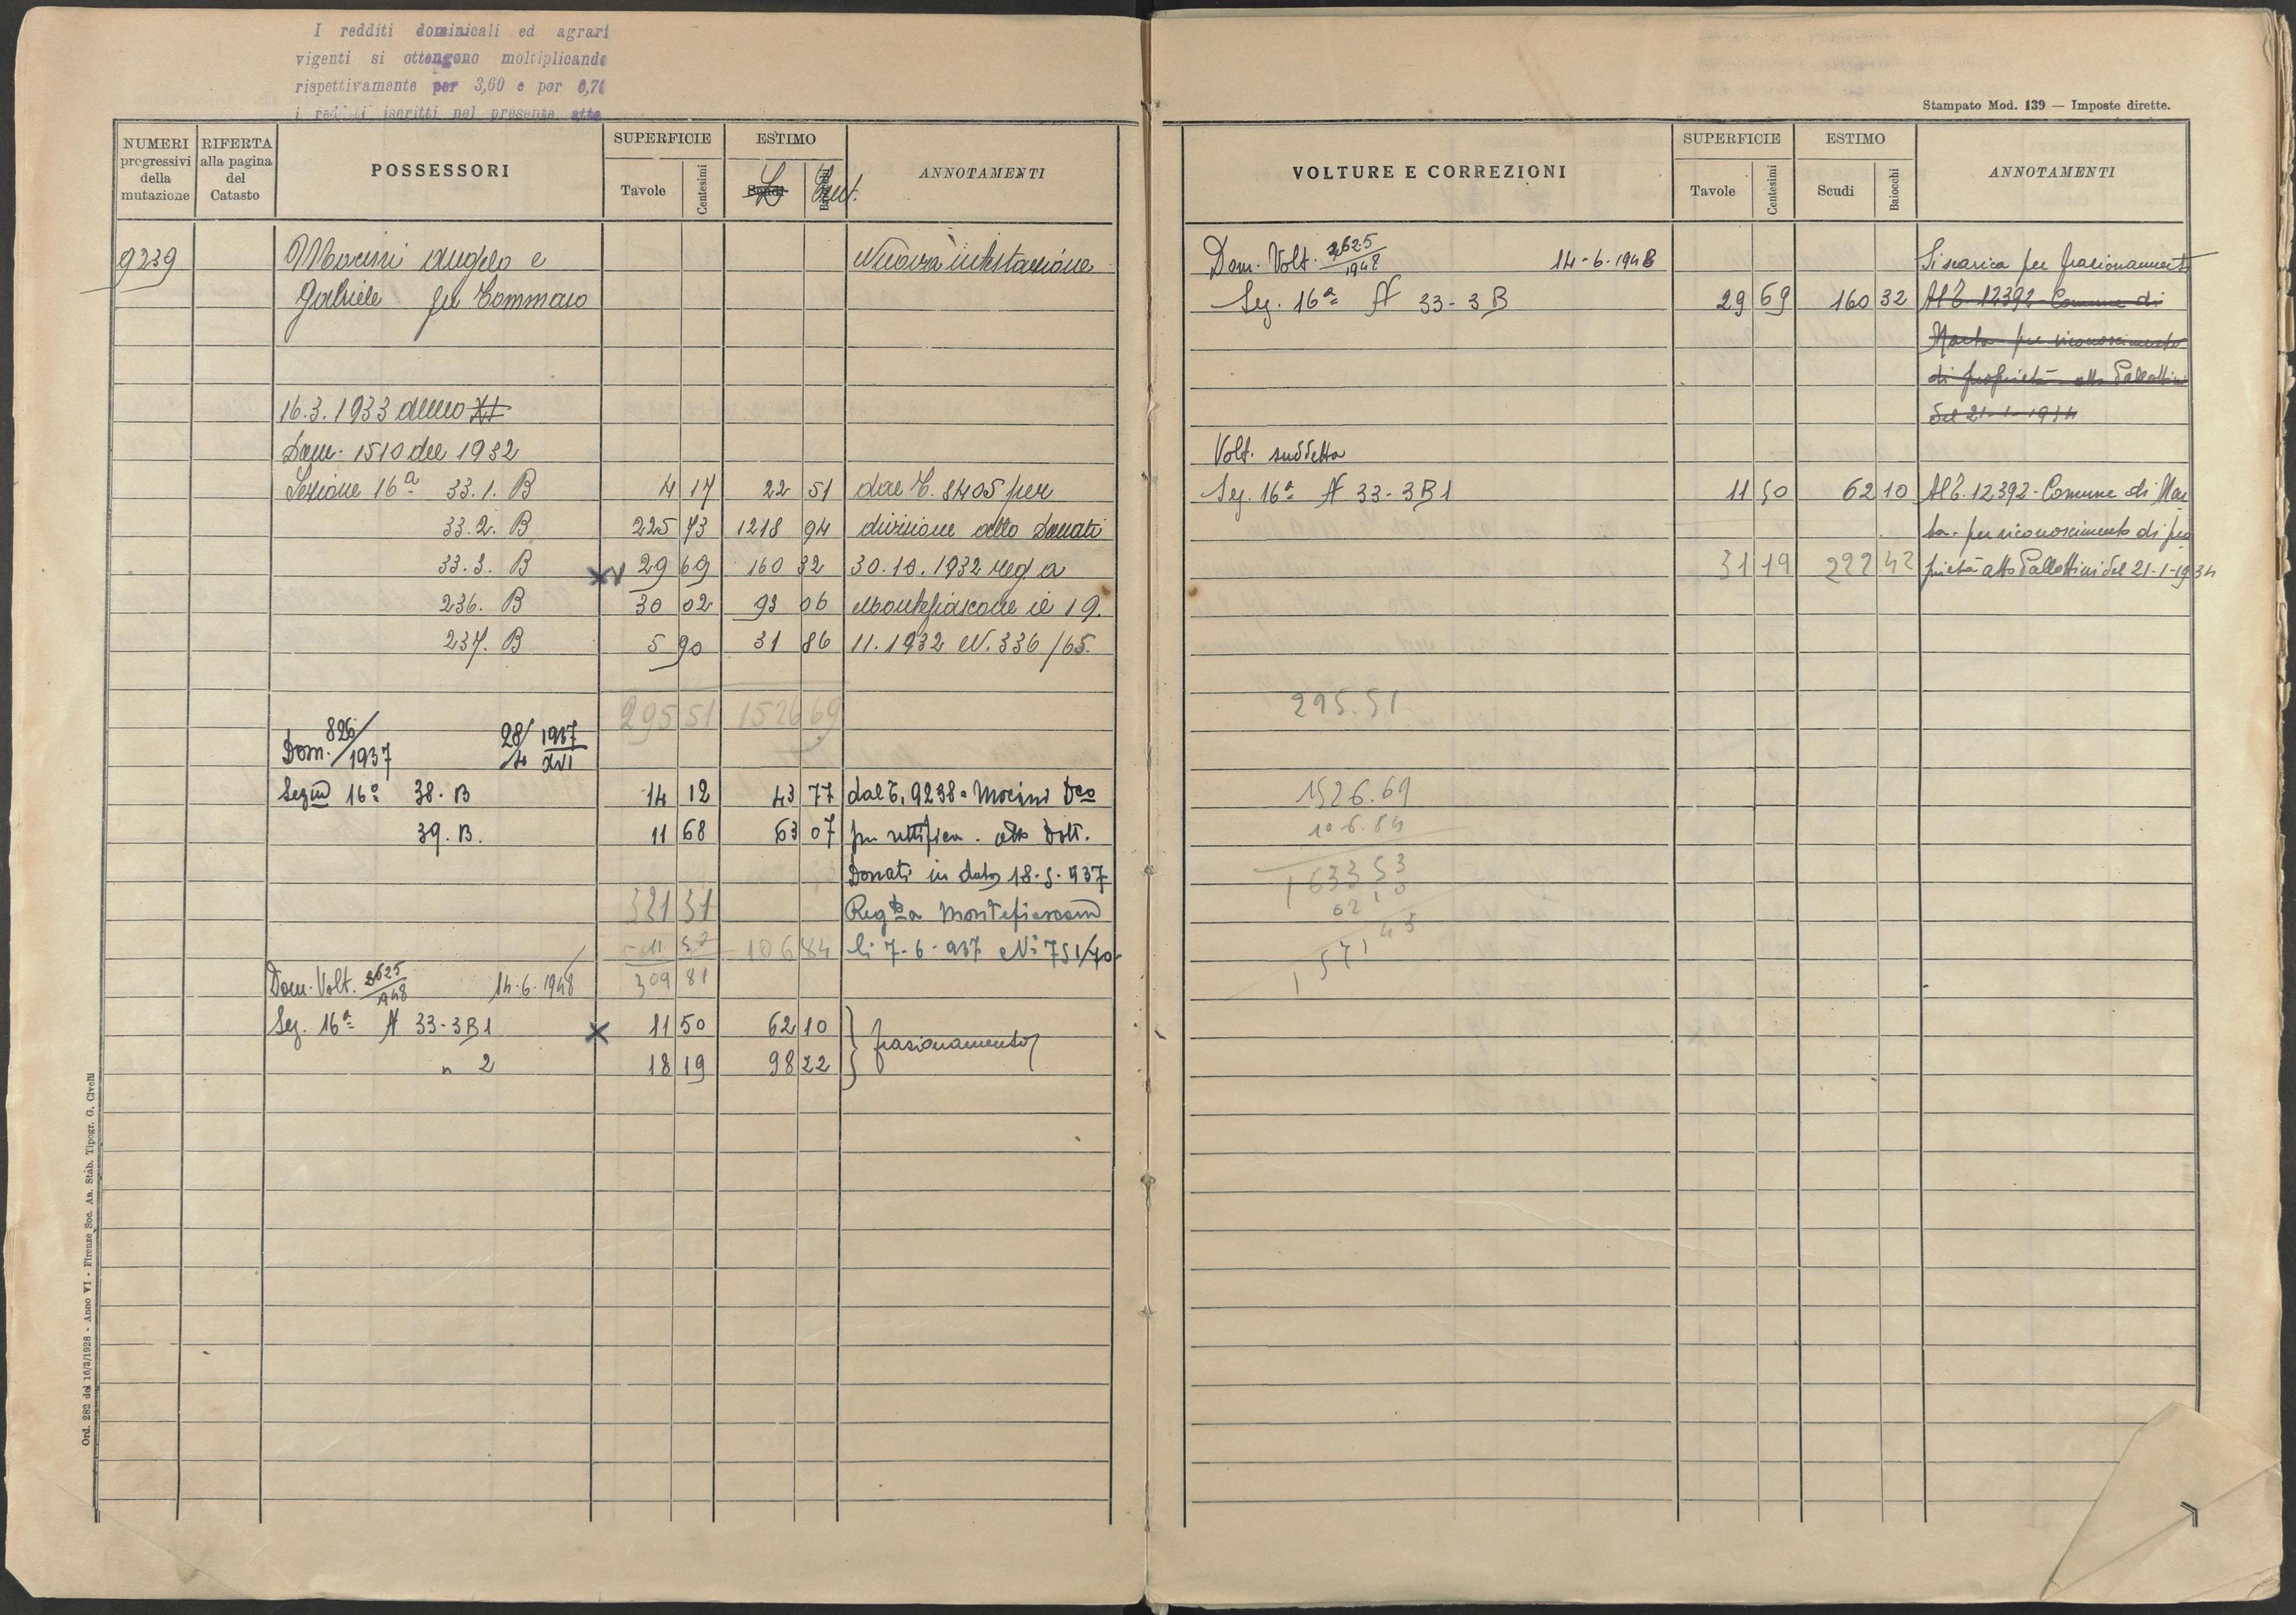 I redditi dominicali ed agrari
vigenti si ottengono moltiplicando
rispettivamente per 3,60 e por 0,70
i redditi iscritti nel presente atto
NUMERI progressivi della mutazione
RIFERTA alla pagina del Catasto
POSSESSORI
SUPERFICIE
Tavole
Centesimi
ESTIMO
Scudi
£
Cent.
ANNOTAMENTI
9239 Mocini Angelo e Nuova intestazione
Gabriele fu Tommaso
16.3.1933 anno XI
Dom. 1510 del 1932
Sezione 16ª 33.1. B 4 17 22 51 dal T. 8405 per
33.2. B 225 73 1218 94 divisione atto Donati
33.3. B 29 69 160 32 30.10.1932 reg a
236. B 30 02 93 06 Montefiascone il 19.
237. B 5 90 31 86 11.1932 N. 336/65.
295 51 1526 69
Dom. 826/1937 28/4 1937 XVI
Sezio 16ª 38. B 14 12 43 77 dal T. 9238 = Mocini Dco
39. B. 11 68 63 07 per rettifica. atto Dott.
Donati in data 18-5-937
321 31 Regto a Montefiascone
- 11 50 106 84 li 7-6-937 N° 751/70
309 81
Dom. Volt. 2625/1948 14.6.1948
Sez. 16ª N 33-3B1 11 50 62 10 frazionamento
" 2 18 19 98 22
Ord. 282 del 16/3/1928 - Anno VI - Firenze, Soc. An. Stab. Tipogr. G. Civelli
Stampato Mod. 139 — Imposte dirette.
VOLTURE E CORREZIONI
SUPERFICIE
Tavole
Centesimi
ESTIMO
Scudi
Baiocchi
ANNOTAMENTI
Dom. Volt. 2625/1948 14-6-1948 Si scarica per frazionamento
Sez. 16ª N 33-3B 29 69 160 32 Al T. 12392 - Comune di
Marta per riconoscimento
di proprietà - atto Pallottini
del 21-1-1934
Volt. suddetta
Sez. 16ª N 33-3B1 11 50 62 10 Al T. 12392 - Comune di Mar
ta - per riconoscimento di pro
31 19 222 42 prietà atto Pallottini del 21-1-1934
295.51
1526.69
106.84
1633 53
62 10
1571 43